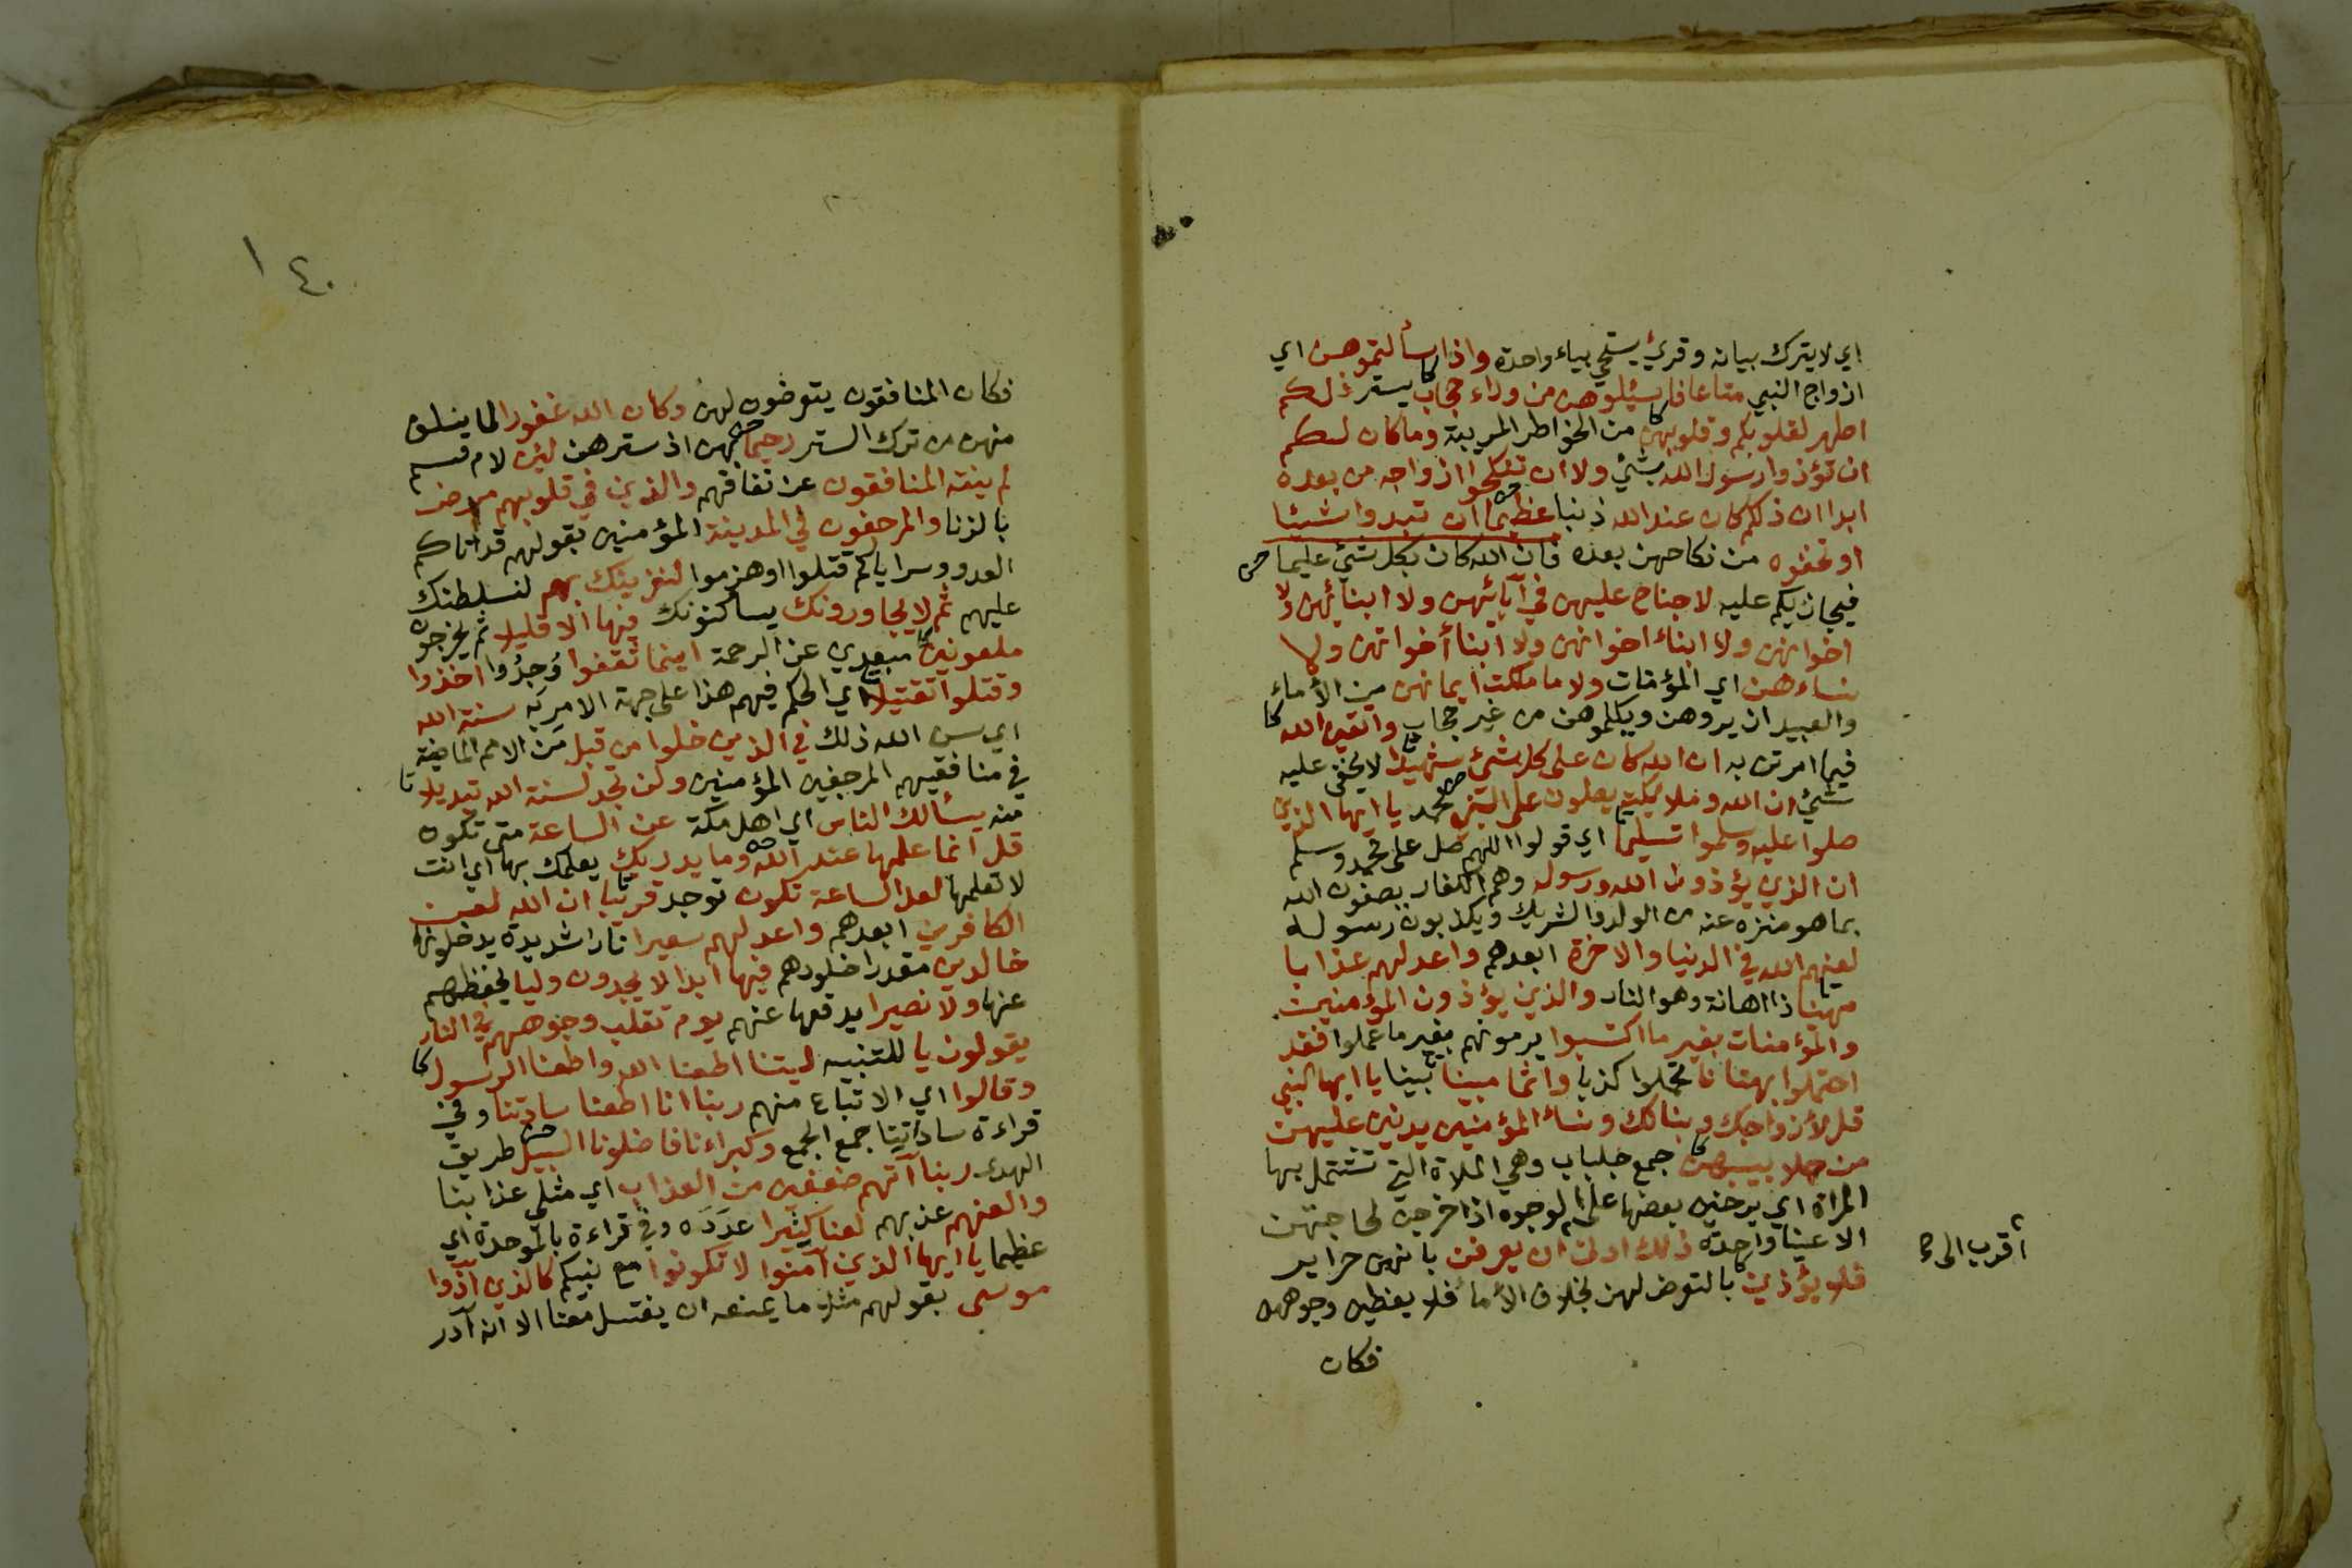 اي لا يترك بيانه وقرئ يستحي بياء واحدة واذا سألتموهن اي
ازواج النبي متاعا فاسئلوهن من وراء حجاب ستر ذلكم
اطهر لقلوبكم وقلوبهن من الخواطر المريبة وما كان لكم
ان تؤذوا رسول الله بشئ ولا ان تنكحوا ازواجه من بعده
ابدا ان ذلكم كان عند الله ذنبا عظيما ان تبدوا شيئا
او تخفوه من نكاحهن بعده فان الله كان بكل شئ عليما
فيجازيكم عليه لا جناح عليهن في آبائهن ولا ابنائهن ولا
اخوانهن ولا ابناء اخوانهن ولا ابنأ أخواتهن ولا
نساءهن اي المؤمنات ولا ما ملكت ايمانهن من الأماء
والعبيد ان يروهن ويكلموهن من غير حجاب واتقين الله
فيما امرتن به ان الله كان على كل شئ شهيدا لا يخفى عليه
شئ ان الله وملائكته يصلون على النبي محمد يا ايها الذين
صلوا عليه وسلموا تسليما اي قولوا اللهم صل على محمد وسلم
ان الذين يؤذون الله ورسوله وهم الكفار يصفون الله
بما هو منزه عنه من الولد والشريك ويكذبون رسوله
لعنهم الله في الدنيا والاخرة ابعدهم واعد لهم عذابا
مهينا ذا اهانة وهو النار والذين يؤذون المؤمنين
والمؤمنات بغير ما اكتسبوا يرمونهم بغير ما عملوا فقد
احتملوا بهتانا تحملوا كذبا واثما مبينا بينا يا ايها النبي
قل لأزواجك وبناتك ونسأ المؤمنين يدنين عليهن
من جلابيبهن جمع جلباب وهي الملاة التي تشتمل بها
المراة اي يرخين بعضها على الوجوه اذا خرجن لحاجتهن
الا عينا واحدة ذلك ادنى ان يعرفن بانهن حراير
أقرب الى
فلا يؤذين بالتعرض لهن بخلاف الأمأ فلا يغطين وجوههن
فكان
١٤٠
فكان المنافقون يتعرضون لهن وكان الله غفورا لما سلف
منهن من ترك الستر رحيما بهن اذ سترهن لئن لام قسم
لم ينته المنافقون عن نفاقهم والذين في قلوبهم مرض
بالزنا والمرجفون في المدينة المؤمنين بقولهم قد اتاكم
العدو وسراياكم قتلوا او هزموا لنغرينك بهم لنسلطنك
عليهم ثم لا يجاورونك يساكنونك فيها الا قليلا ثم يخرجون
ملعونين مبعدين عن الرحمة اينما ثقفوا وُجِدُوا اخذوا
وقتلوا تقتيلا اي الحكم فيهم هذا على جهة الامر به سنة الله
اي سن الله ذلك في الذين خلوا من قبل من الامم الماضية
في منافقيهم المرجفين المؤمنين ولن تجد لسنة الله تبديلا
منه يسألك الناس اي اهل مكة عن الساعة متى تكون
قل انما علمها عند الله وما يدريك يعلمك بها اي انت
لا تعلمها لعل الساعة تكون توجد قريبا ان الله لعن
الكافرين ابعدهم واعد لهم سعيرا نارا شديدة يدخلونها
خالدين مقدرا خلودهم فيها ابدا لا يجدون وليا يحفظهم
عنها ولا نصيرا يدفعها عنهم يوم تقلب وجوههم في النار
يقولون يا للتنبيه ليتنا اطعنا الله واطعنا الرسول
وقالوا اي الاتباع منهم ربنا انا اطعنا سادتنا وفي
قراءة ساداتنا جمع الجمع وكبراءنا فاضلونا السبيل طريق
الهدى ربنا آتهم ضعفين من العذاب اي مثلي عذابنا
والعنهم عذبهم لعنا كثيرا عدَدَه وفي قراءة بالموحدة اي
عظيما يا ايها الذين آمنوا لا تكونوا مع نبيكم كالذين آذوا
موسى بقولهم مثلا ما يمنعه ان يغتسل معنا الا انه آدر